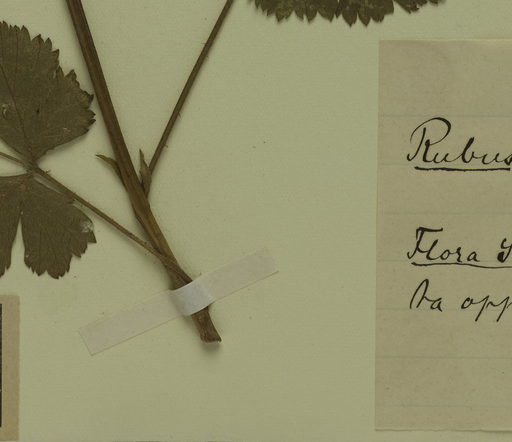 Rubus
Flora
opp